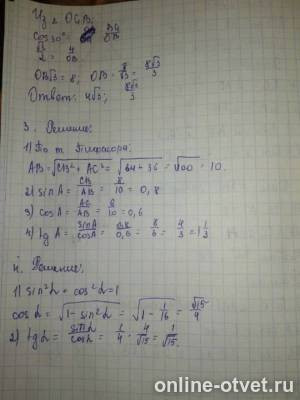 Из Δ OGB:
cos30° = BG/OB
√3/2 = 4/OB
OB√3 = 8; OB = 8/√3 = 8√3/3
Ответ: 4√3; 8√3/3
3. Решение:
1) По т. Пифагора:
AB = √CB² + AC² = √64 + 36 = √100 = 10
2) sin A = CB/AB = 8/10 = 0,8
3) cos A = AC/AB = 6/10 = 0,6
4) tg A = sinA/cosA = 0,8/0,6 = 8/6 = 4/3 = 1 1/3
4. Решение:
1) sin²α + cos²α = 1
cos α = √1 - sin²α = √1 - 1/16 = √15/4
2) tg α = sinα/cosα = 1/4 · 4/√15 = 1/√15.
online-otvet.ru